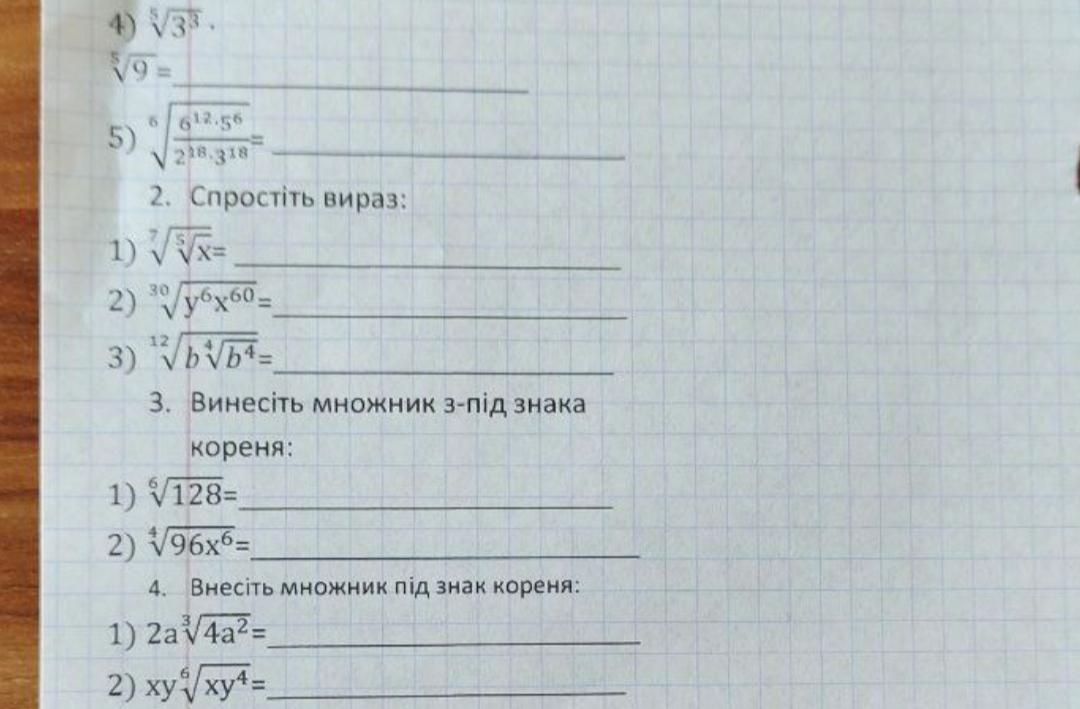 4) ⁵√3³ ·
⁵√9 = ____________
5) ⁶√(6¹²·5⁶ / 2¹⁸·3¹⁸) = ____________
2. Спростіть вираз:
1) ⁷√(⁵√x) = ____________
2) ³⁰√(y⁶x⁶⁰) = ____________
3) ¹²√(b⁴√(b⁴)) = ____________
3. Винесіть множник з-під знака
кореня:
1) ⁶√128 = ____________
2) ⁴√(96x⁶) = ____________
4. Внесіть множник під знак кореня:
1) 2a³√(4a²) = ____________
2) xy⁶√(xy⁴) = ____________